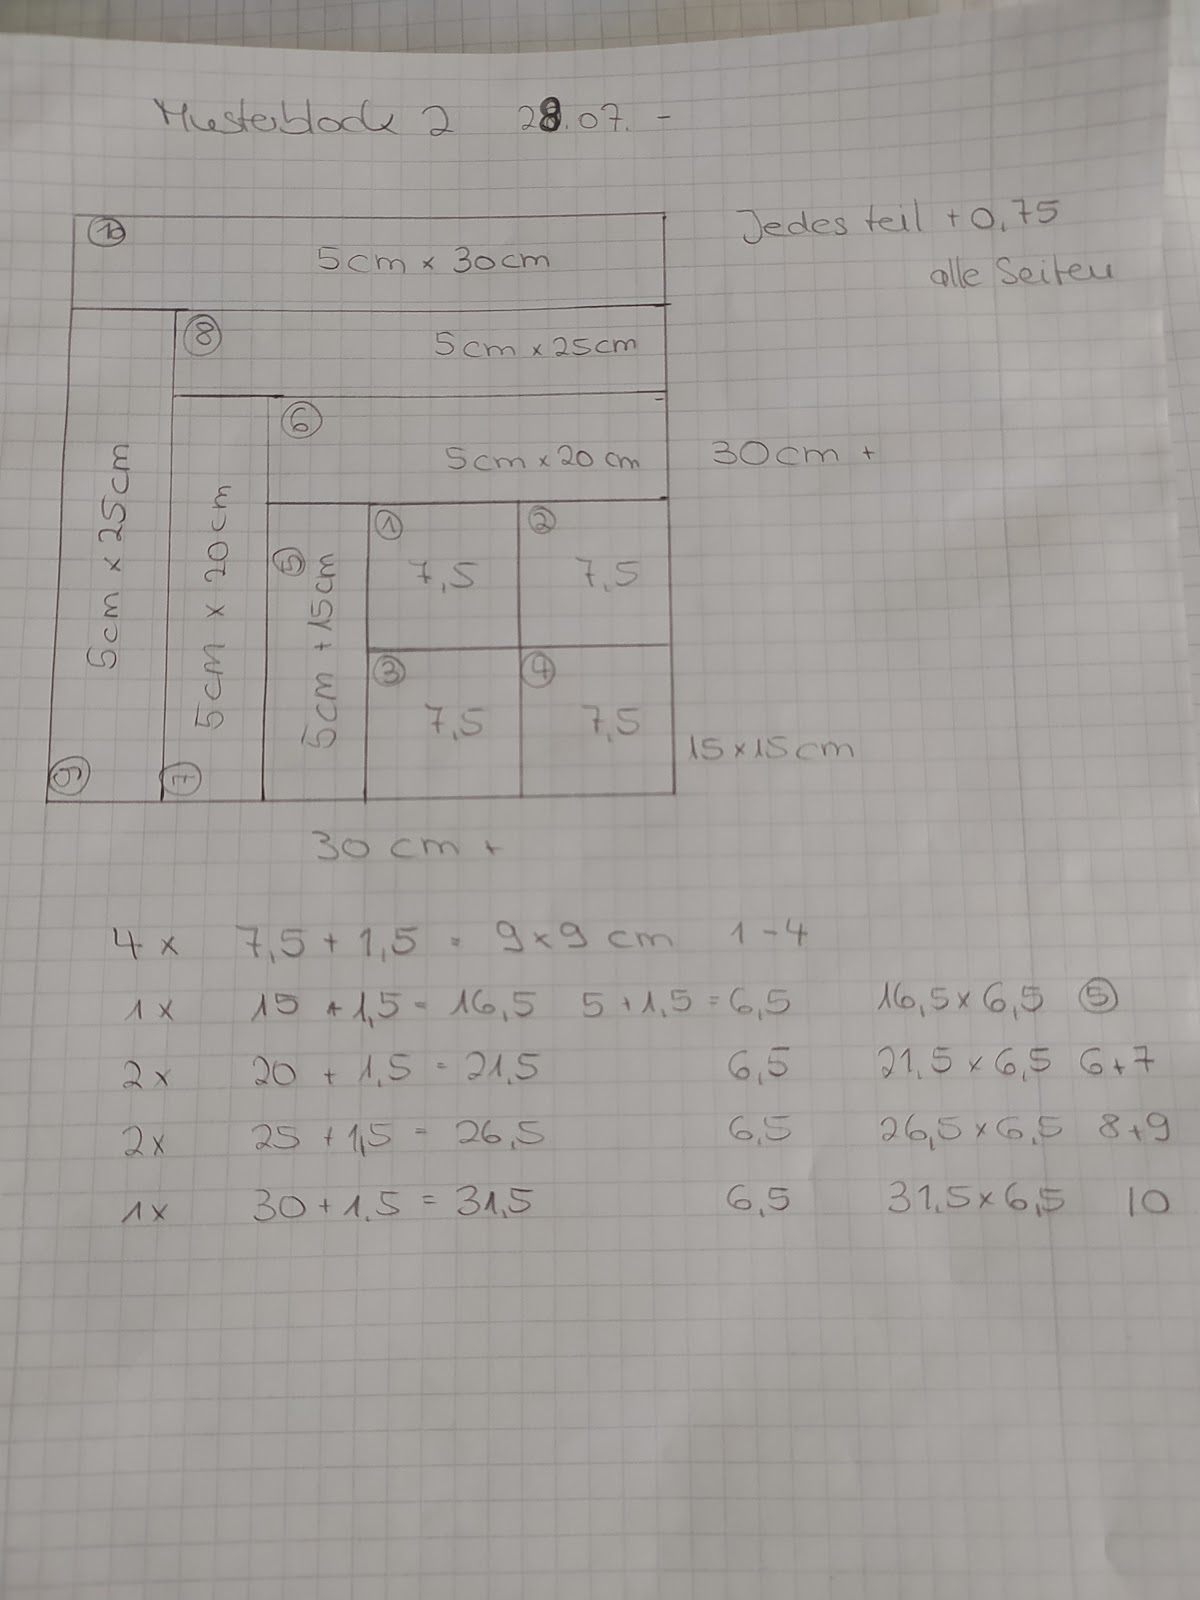 Musterblock 2 28.07. -
Jedes teil + 0,75
alle Seiten
10
5cm x 30cm
8
5cm x 25cm
6
5cm x 20cm
30cm +
5cm x 25cm
9
5cm x 20cm
7
5
5cm + 15cm
1
7,5
2
7,5
3
7,5
4
7,5
15 x 15cm
30 cm +
4 x 7,5 + 1,5 = 9 x 9 cm 1 - 4
1 x 15 + 1,5 = 16,5 5 + 1,5 = 6,5 16,5 x 6,5 5
2 x 20 + 1,5 = 21,5 6,5 21,5 x 6,5 6 + 7
2 x 25 + 1,5 = 26,5 6,5 26,5 x 6,5 8 + 9
1 x 30 + 1,5 = 31,5 6,5 31,5 x 6,5 10